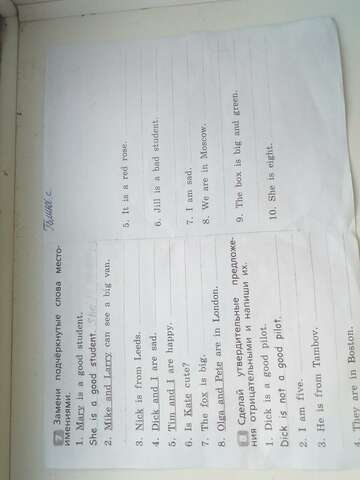 7 Замени подчёркнутые слова место-
имениями.
1. Mary is a good student.
She is a good student. She
2. Mike and Larry can see a big van.
3. Nick is from Leeds.
4. Dick and I are sad.
5. Tim and I are happy.
6. Is Kate cute?
7. The fox is big.
8. Olga and Pete are in London.
8 Сделай утвердительные предложе-
ния отрицательными и напиши их.
1. Dick is a good pilot.
Dick is not a good pilot.
2. I am five.
3. He is from Tambov.
4. They are in Boston.
5. It is a red rose.
6. Jill is a bad student.
7. I am sad.
8. We are in Moscow.
9. The box is big and green.
10. She is eight.